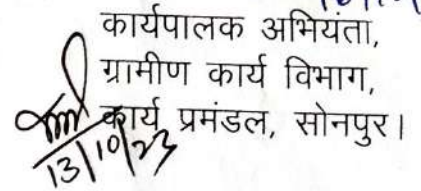 कार्यपालक अभियंता,
ग्रामीण कार्य विभाग,
कार्य प्रमंडल, सोनपुर।
13/10/23